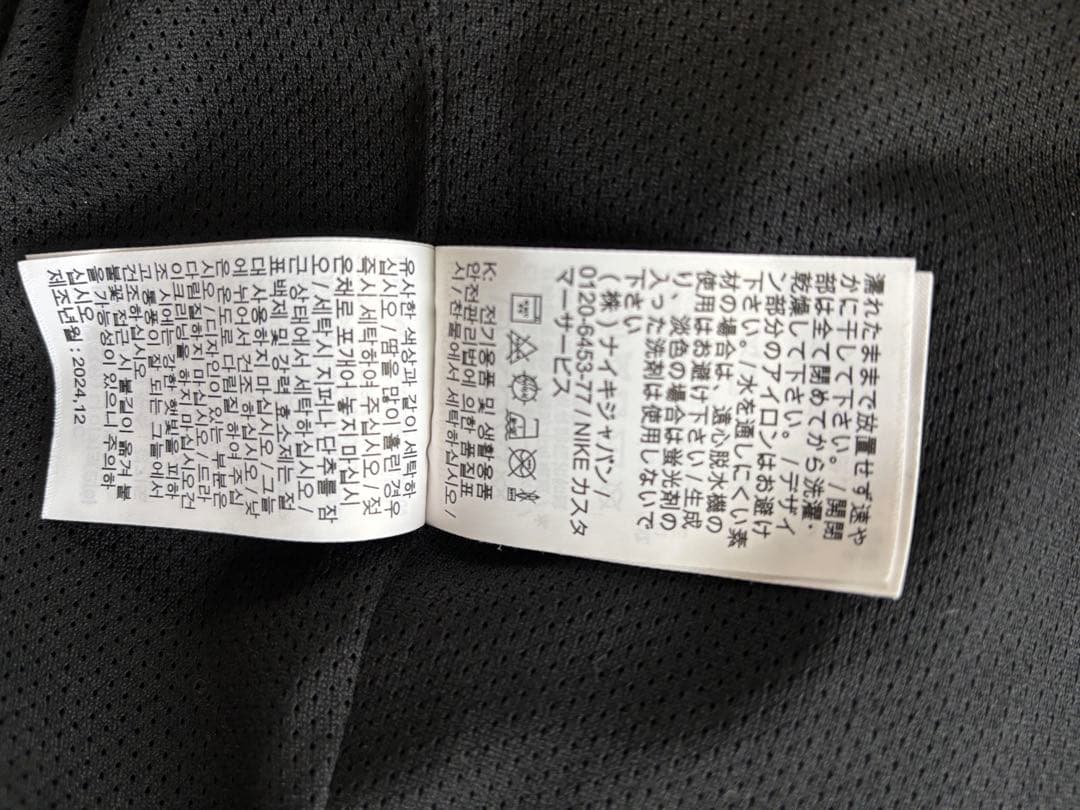 濡れたままで放置せず速や
かに干して下さい。/開閉
部は全て閉めてから洗濯・
乾燥して下さい。/デザイ
ン部分のアイロンはお避け
下さい。/水を通しにくい素
材の場合は、遠心脱水機の
使用はお避け下さい/生成
り、淡色の場合は蛍光剤の
入った洗剤は使用しないで
下さい
(株)ナイキジャパン/
0120-6453-77/NIKE カスタ
マーサービス
K: 전기용품 및 생활용품
안전관리법에 의한 품질표
시/찬물에서 세탁하십시오/
유사한 색상과 같이 세탁하
십시오/땀을 많이 흘린 경우
즉시 세탁하여 주십시오/젖
은채로 포개어 놓지 마십시
오/세탁시 지퍼나 단추를 잠
근 상태에서 세탁하십시오/
표백제 및 강력 효소제는 절
대 사용하지 마십시오/그늘
에 뉘어서 건조 하십시오/낮
은 온도로 다림질 하여 주십
시오/디자인이 있는 부분은
다림질하지 마십시오/드라
이크리닝을 하지 마십시오건
조 시에는 강한 햇빛을 피하
고 통풍이 잘 되는 그늘에서
건조하십시오
불꽃 접근 시 불길이 옮겨 붙
을 가능성이 있으니 주의하
십시오
제조년월 : 2024.12